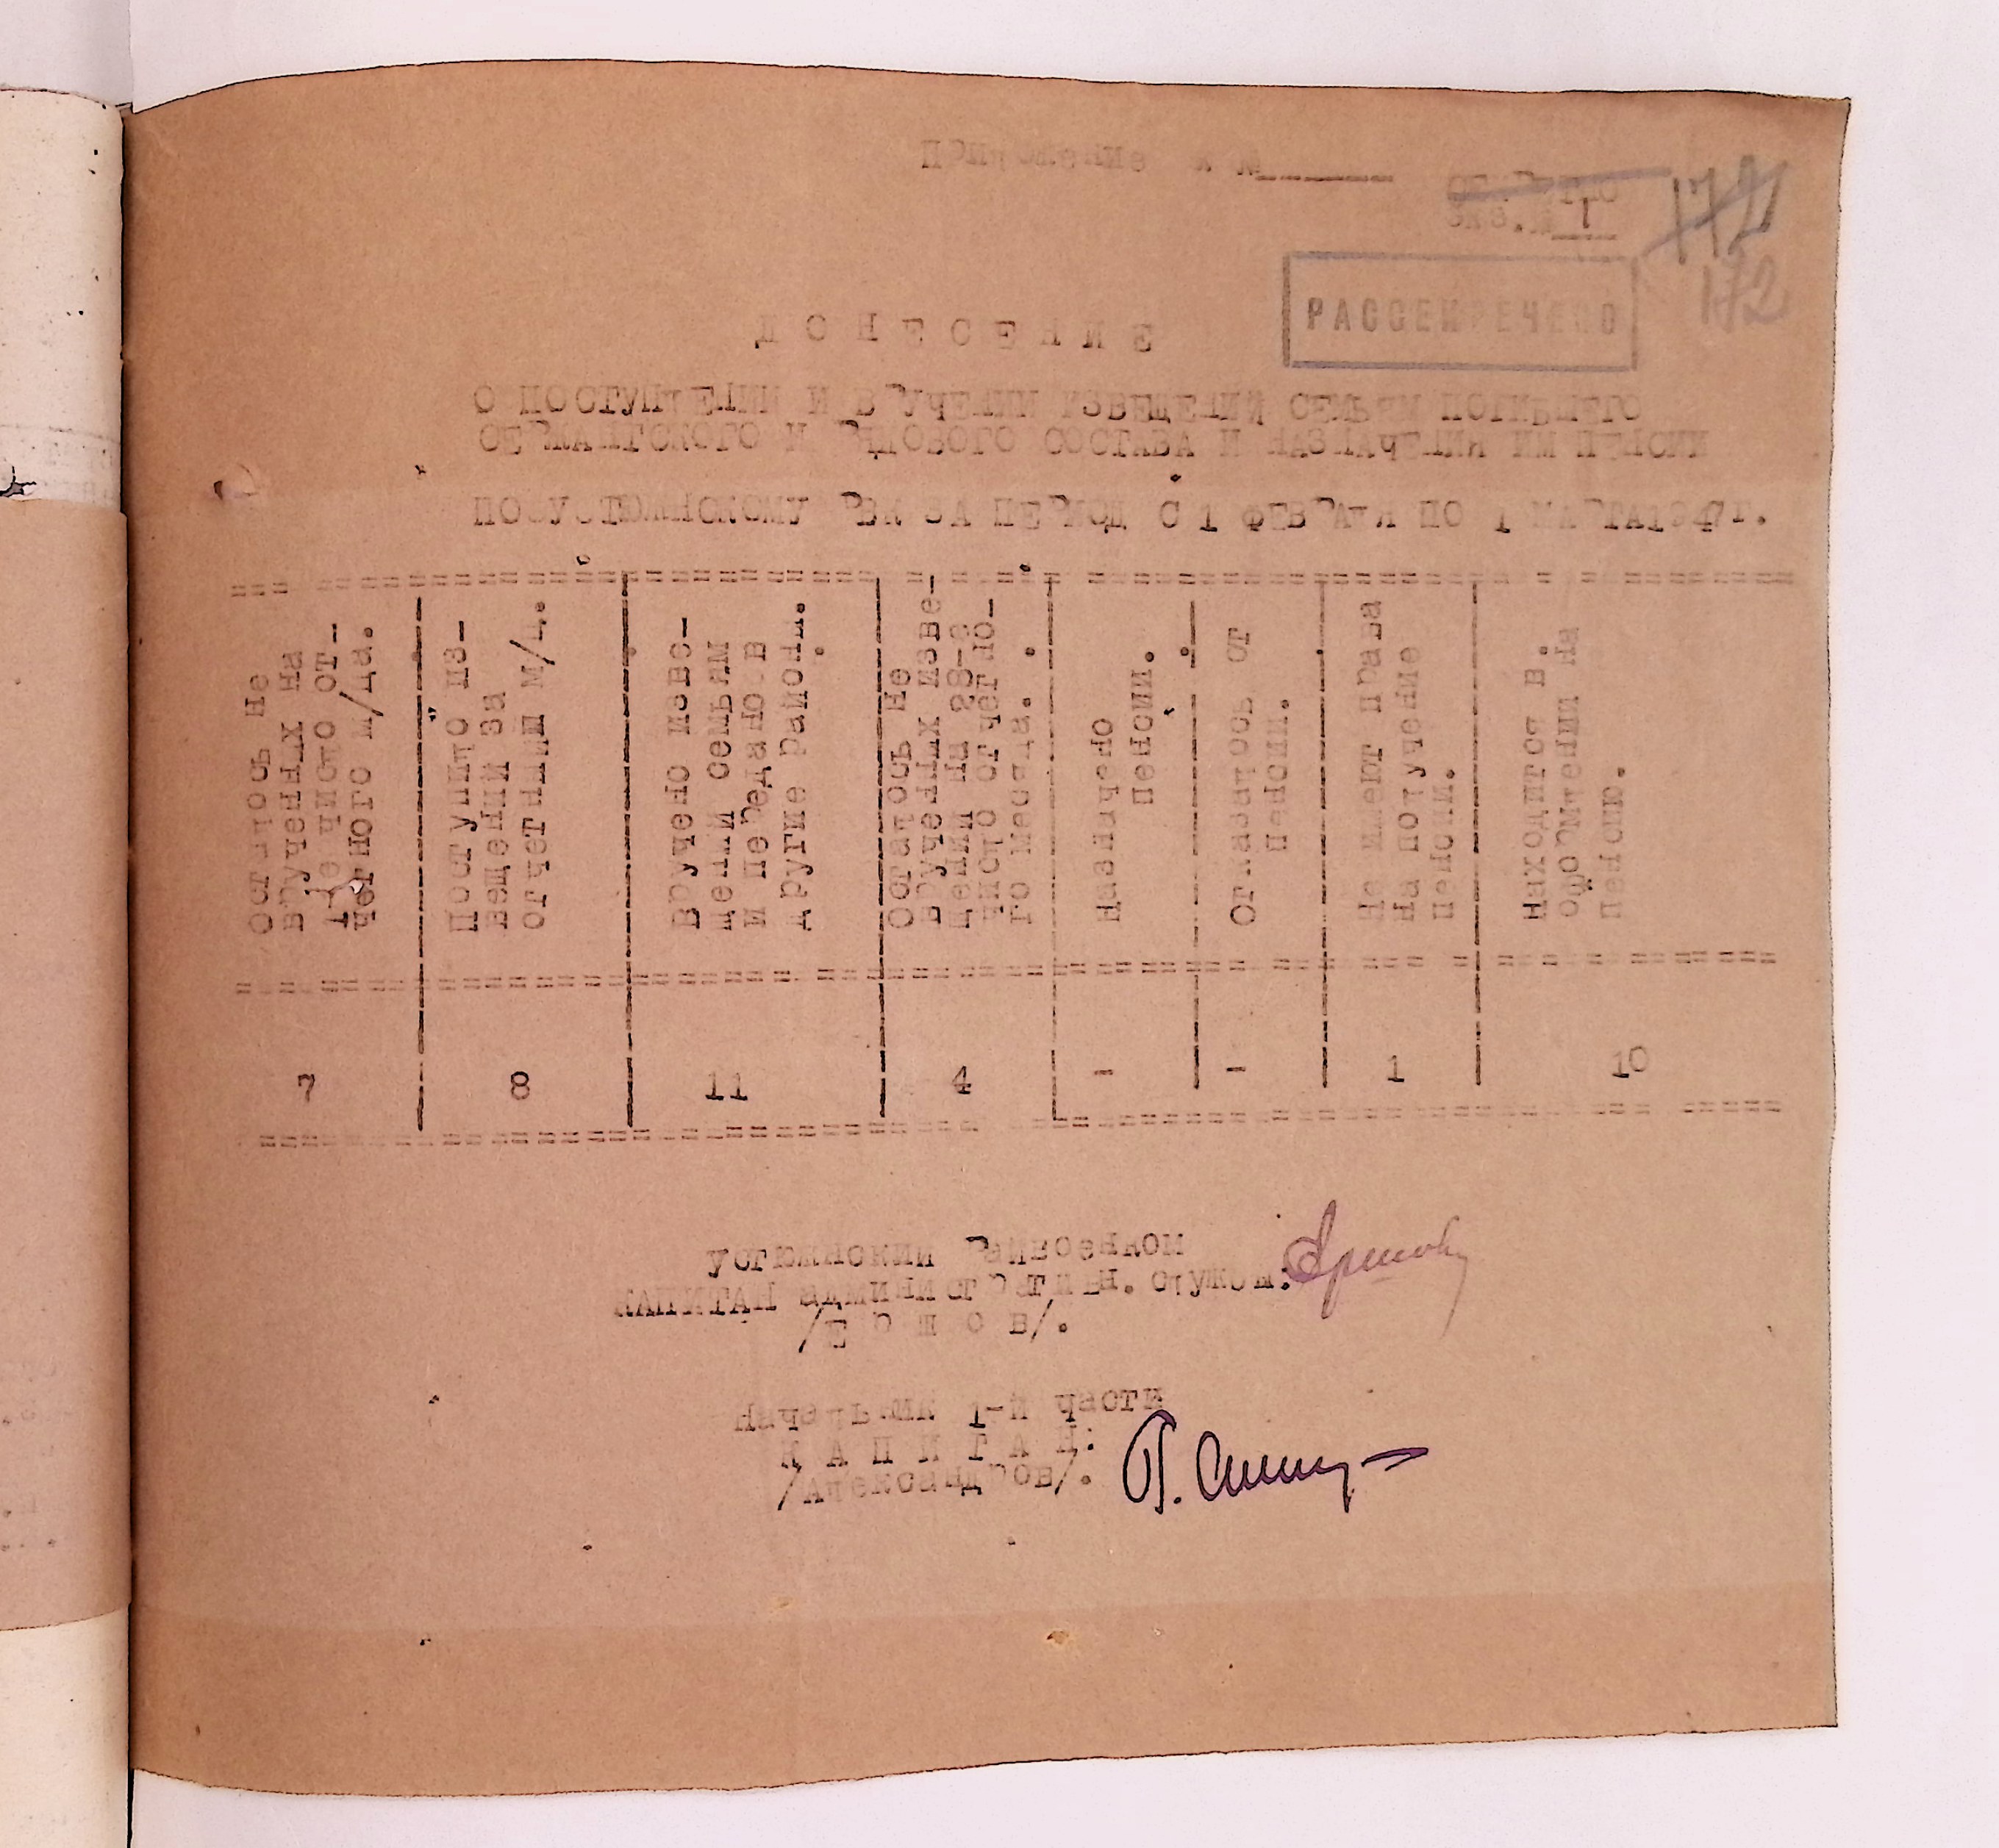 Приложение к №______
СЕКРЕТНО
Экз.№ 1
172
172
РАССЕКРЕЧЕНО
ДОНЕСЕНИЕ
О ПОСТУПЛЕНИИ И ВРУЧЕНИИ ИЗВЕЩЕНИЙ СЕМЬЯМ ПОГИБШЕГО
СЕРЖАНТСКОГО И РЯДОВОГО СОСТАВА И НАЗНАЧЕНИЯ ИМ ПЕНСИИ
ПО УСТЮЖЕНСКОМУ РВК ЗА ПЕРИОД С 1 ФЕВРАЛЯ ПО 1 МАРТА 1947г.
Осталось не
врученных на
1-е число от-
четного м/ца.
Поступило из-
вещений за
отчетный м/ц.
Вручено изве-
щений семьям
и передано в
другие районы.
Осталось не
врученных изве-
щений на 28-е
число отчетно-
го месяца.
Назначено
пенсий.
Отказалось от
пенсии.
Не имеют права
на получение
пенсии.
Находится в
оформлении на
пенсию.
7
8
11
4
-
-
1
10
УСТЮЖЕНСКИЙ Райвоенком
КАПИТАН административ. службы:
/Е р ш о в/.
Начальник 1-й части
К А П И Т А Н:
/Александров/.